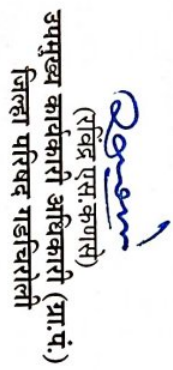 (रविंद्र एस.कणसे)
उपमुख्य कार्यकारी अधिकारी (प्रा.पं.)
जिल्हा परिषद गडचिरोली